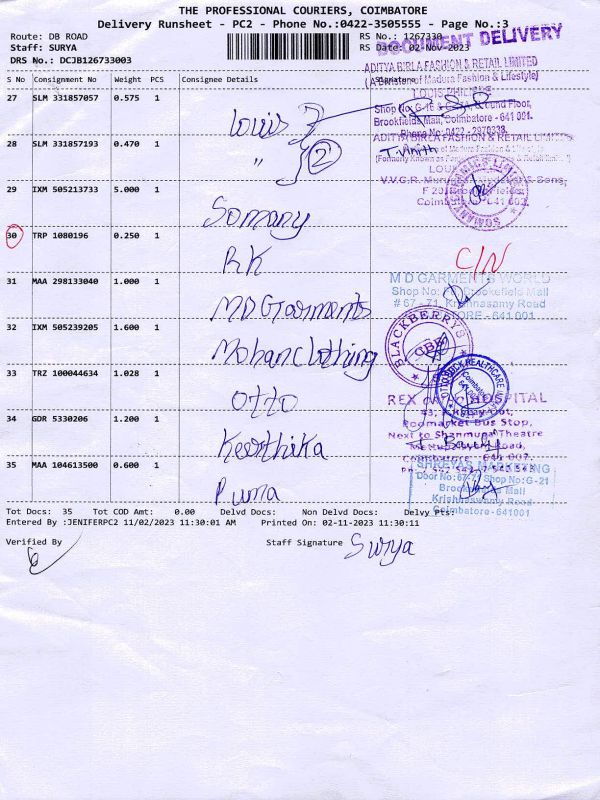 THE PROFESSIONAL COURIERS, COIMBATORE
Delivery Runsheet - PC2 - Phone No.:0422-3505555 - Page No.:3
Route: DB ROAD
RS No.: 1267330
Staff: SURYA
RS Date: 02-Nov-2023
DRS No.: DCJB126733003
DOCUMENT DELIVERY
S No Consignment No Weight PCS Consignee Details
ADITYA BIRLA FASHION & RETAIL LIMITED
(A Division of Madura Fashion & Lifestyle)
27 SLM 331857057 0.575 1 Louis
LOUIS PHILIPPE
Floor,
Brookfields Mall, Coimbatore - 641 001.
Phone No: 0422 - 2970339
28 SLM 331857193 0.470 1 " 2
ADITYA BIRLA FASHION & RETAIL LIMITED
T. Vinith
29 IXM 505213733 5.000 1 Somany
30 TRP 1080196 0.250 1 RK
C/N
31 MAA 298133040 1.000 1 MD Garments
M D GARMENTS WORLD
Shop No: Brookefield Mall
# 67 - 71, Krishnasamy Road
COIMBATORE - 641 001
32 IXM 505239205 1.600 1 Mohan Clothing
BLACKBERRYS
33 TRZ 100044634 1.028 1 Otto
REX HOSPITAL
Poomarket Bus Stop,
Next to Shanmuga Theatre
34 GDR 5330206 1.200 1 Keerthika
35 MAA 104613500 0.600 1 Puma
SHREYAS MARKETING
Door No:67-71 Shop No:G-21
Brookefields Mall
Krishnaswamy Road
Coimbatore -641001
Tot Docs: 35 Tot COD Amt: 0.00 Delvd Docs: Non Delvd Docs: Delvy Pts:
Entered By :JENIFERPC2 11/02/2023 11:30:01 AM Printed On: 02-11-2023 11:30:11
Verified By
Staff Signature Surya